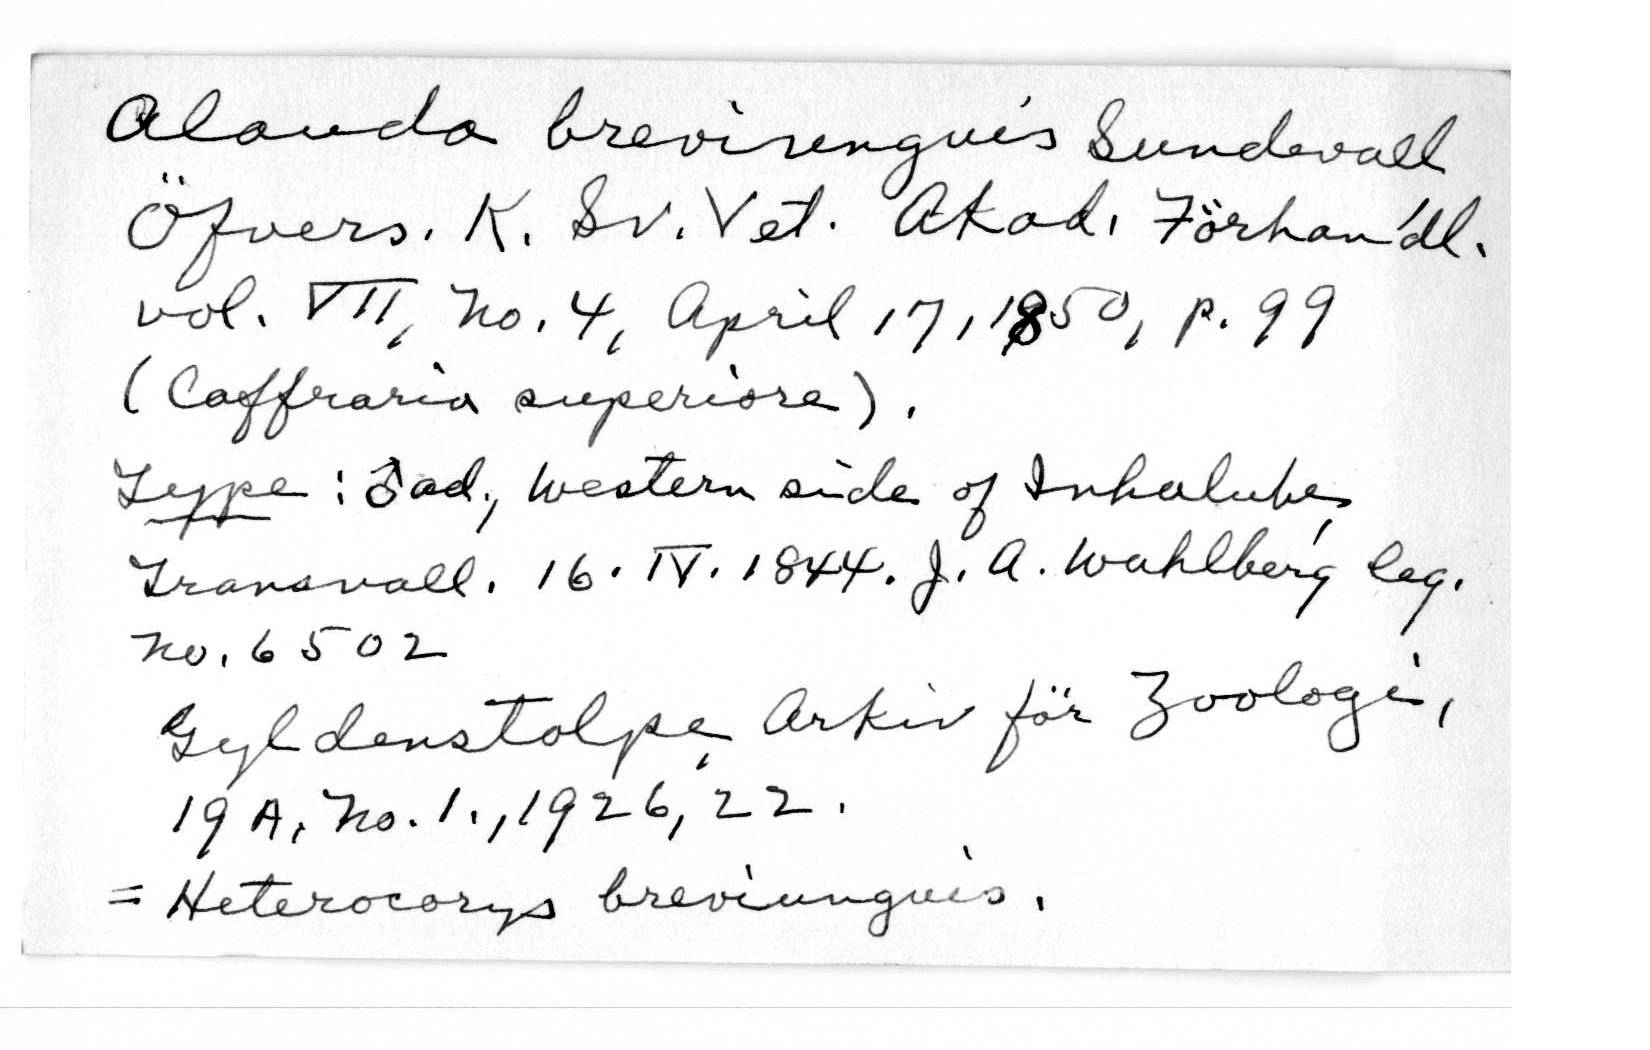 Alauda breviunguis Sundevall
Öfvers. K. Sv. Vet. Akad. Förhandl.
vol. VII, No. 4, April 17, 1850, p. 99
(Caffraria superiore).
Type : ♂ ad., Western side of
Transvall. 16. IV. 1844. J. A. Wahlberg leg.
No. 6502
Gyldenstolpe, Arkiv för Zoologi,
19 A, No. 1., 1926, 22.
= Heterocorys breviunguis.